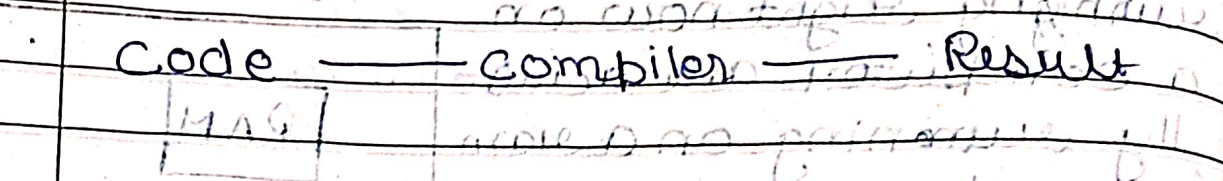 Code — Compiler — Result